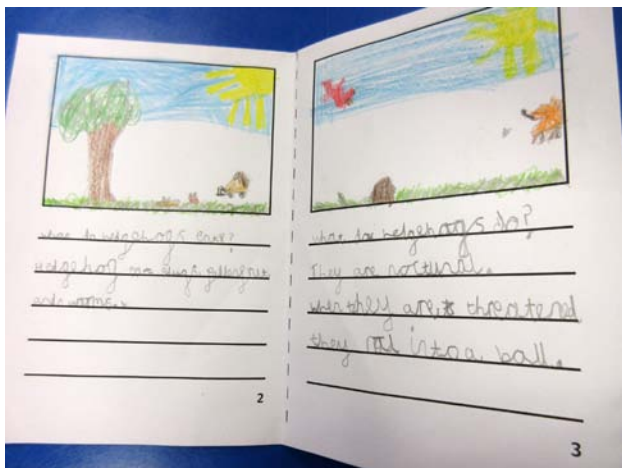 what do hedgehogs
Hedgehog slugs
and
2
what do hedgehogs do?
They are nocturnal.
when they are threatened
they into a ball.
3